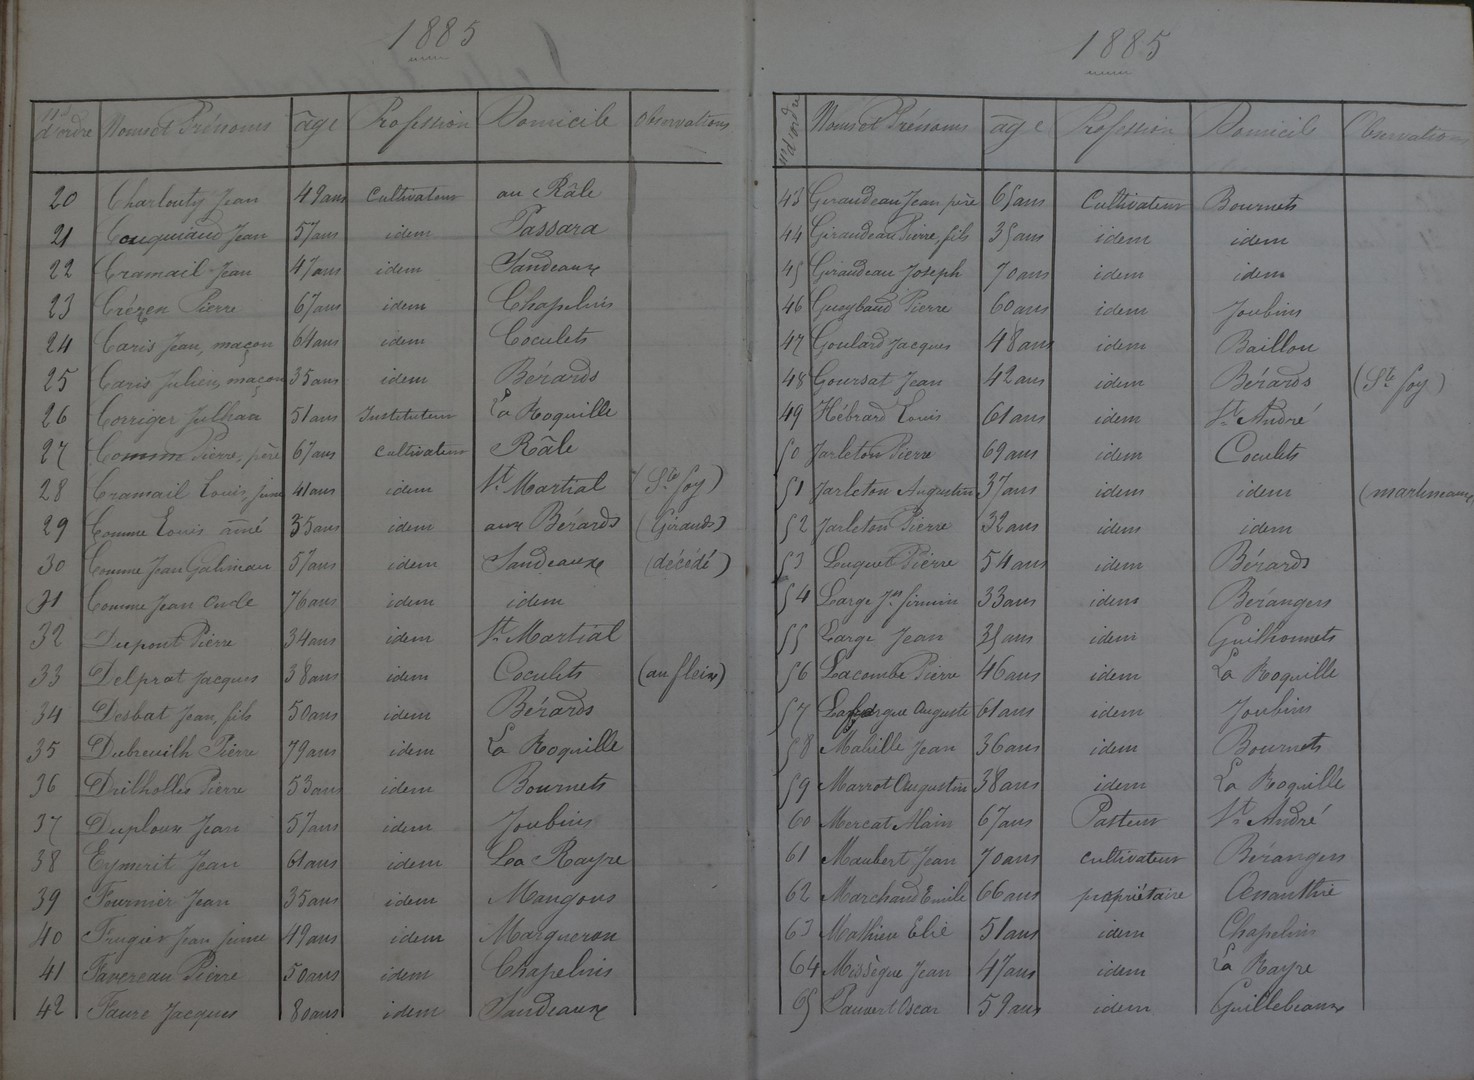 1885
Nos d'ordre Noms et Prénoms âge Profession Domicile Observations
20 Charlouty Jean 49 ans Cultivateur au Râle
21 Couquiaud Jean 57 ans idem Passara
22 Cramail Jean 47 ans idem Jandeaux
23 Crézen Pierre 67 ans idem Chapelins
24 Caris Jean, maçon 61 ans idem Coculets
25 Caris Julien, maçon 35 ans idem Bérards
26 Corriger 51 ans Instituteur La Roquille
27 Comme Pierre, père 67 ans cultivateur Râle
28 Cramail Louis, jeune 41 ans idem St Martial (Ste foy)
29 Comme Louis aîné 35 ans idem aux Bérards (Girauds)
30 Comme Jean Galineau 57 ans idem Jandeaux (décédé)
31 Comme Jean Oncle 76 ans idem idem
32 Dupont Pierre 34 ans idem St Martial
33 Delprat Jacques 38 ans idem Coculets (au fleix)
34 Desbat Jean, fils 50 ans idem Bérards
35 Dubreuilh Pierre 79 ans idem La Roquille
36 Drilholles Pierre 53 ans idem Bournets
37 Duploux Jean 57 ans idem Joubins
38 Eymerit Jean 61 ans idem La Rayre
39 Fournier Jean 35 ans idem Maugons
40 Frugier Jean jeune 49 ans idem Margueron
41 Favereau Pierre 50 ans idem Chapelins
42 Faure Jacques 80 ans idem Jandeaux
1885
Nos d'ordre Noms et Prénoms âge Profession Domicile Observations
43 Giraudeau Jean père 65 ans Cultivateur Bournets
44 Giraudeau Pierre, fils 35 ans idem idem
45 Giraudeau Joseph 70 ans idem idem
46 Gueybaud Pierre 60 ans idem Joubins
47 Goulard Jacques 48 ans idem Baillou
48 Goursat Jean 42 ans idem Bérards (Ste foy)
49 Hébrard Louis 61 ans idem St André
50 Jarleton Pierre 69 ans idem Coculets
51 Jarleton Augustin 37 ans idem idem (martineaux
52 Jarleton Pierre 32 ans idem idem
53 Luquet Pierre 54 ans idem Bérards
54 Large Jn firmin 33 ans idem Bérangers
55 Large Jean 35 ans idem Guilhonnets
56 Lacombe Pierre 46 ans idem La Roquille
57 Lafargue Auguste 61 ans idem Joubins
58 Mabille Jean 36 ans idem Bournets
59 Marrot Augustin 38 ans idem La Roquille
60 Mercat Alain 67 ans Pasteur St André
61 Maubert Jean 70 ans cultivateur Bérangers
62 Marchand Emile 66 ans propriétaire
63 Mathieu Elie 51 ans idem Chapelins
64 Messèque Jean 47 ans idem La Rayre
65 Pauvert Oscar 59 ans idem Guillebeaux